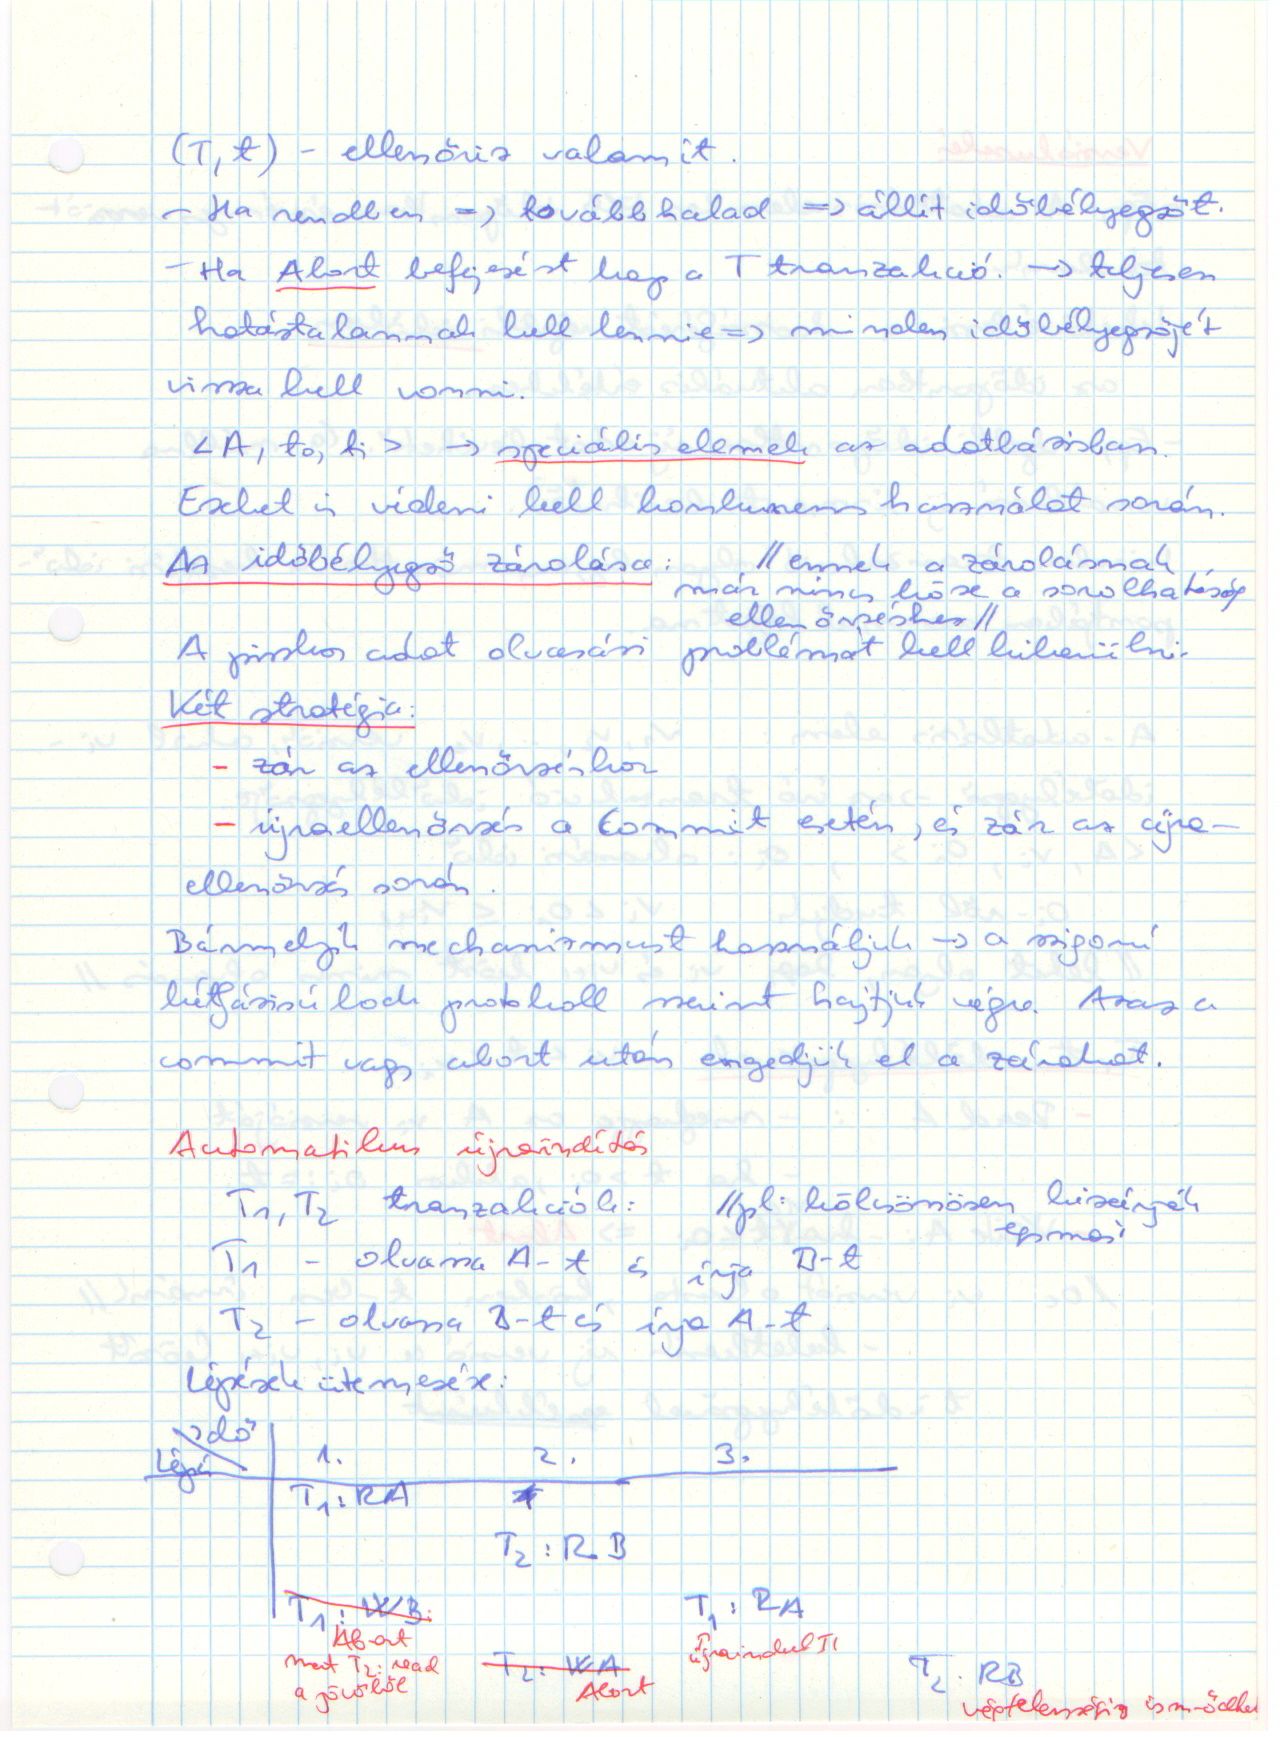 (T, t) - ellenőriz valamit.
- Ha rendben => továbbhalad => állít időbélyegzőt.
- Ha Abort befejezést kap a T tranzakció. -> teljesen
hatástalannak kell lennie => minden időbélyegzőjét
vissza kell vonni.
<A, to, ti> -> speciális elemek az adatbázisban.
Ezeket is védeni kell konkurrens használat során.
Az időbélyegző zárolása: //ennek a zárolásnak
már nincs köze a sorolhatóság
ellenőrzéshez//
A piszkos adat olvasási problémát kell kikerülni.
Két stratégia:
- zár az ellenőrzéskor
- újraellenőrzés a Commit esetén, és zár az újra-
ellenőrzés során.
Bármelyik mechanizmust használjuk -> a szigorú
kétfázisú lock protokoll szerint hajtjuk végre. Azaz a
commit vagy abort után engedjük el a zárakat.
Automatikus újraindítás
T1, T2 tranzakciók: //pl: kölcsönösen kizárják
egymást
T1 - olvassa A-t és írja B-t
T2 - olvassa B-t és írja A-t.
Lépések ütemezése:
idő
Lépés 1. 2. 3.
T1: RA
T2: RB
T1: WB: T1: RA
Abort újraindul T1
mert T2: read
a jövőből
T2: WA T2: RB
Abort végtelenségig ismétlődhet